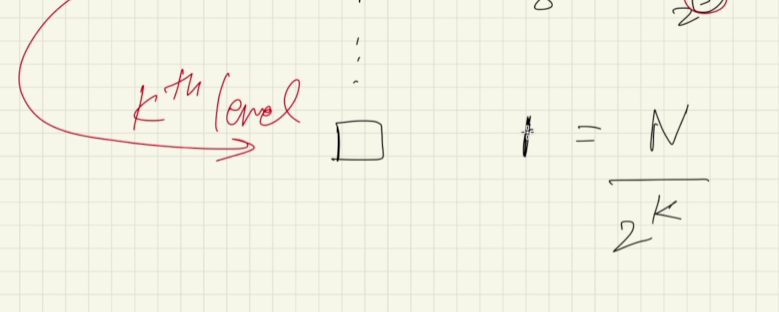 8
2^3
K^th level
1 = N / 2^K